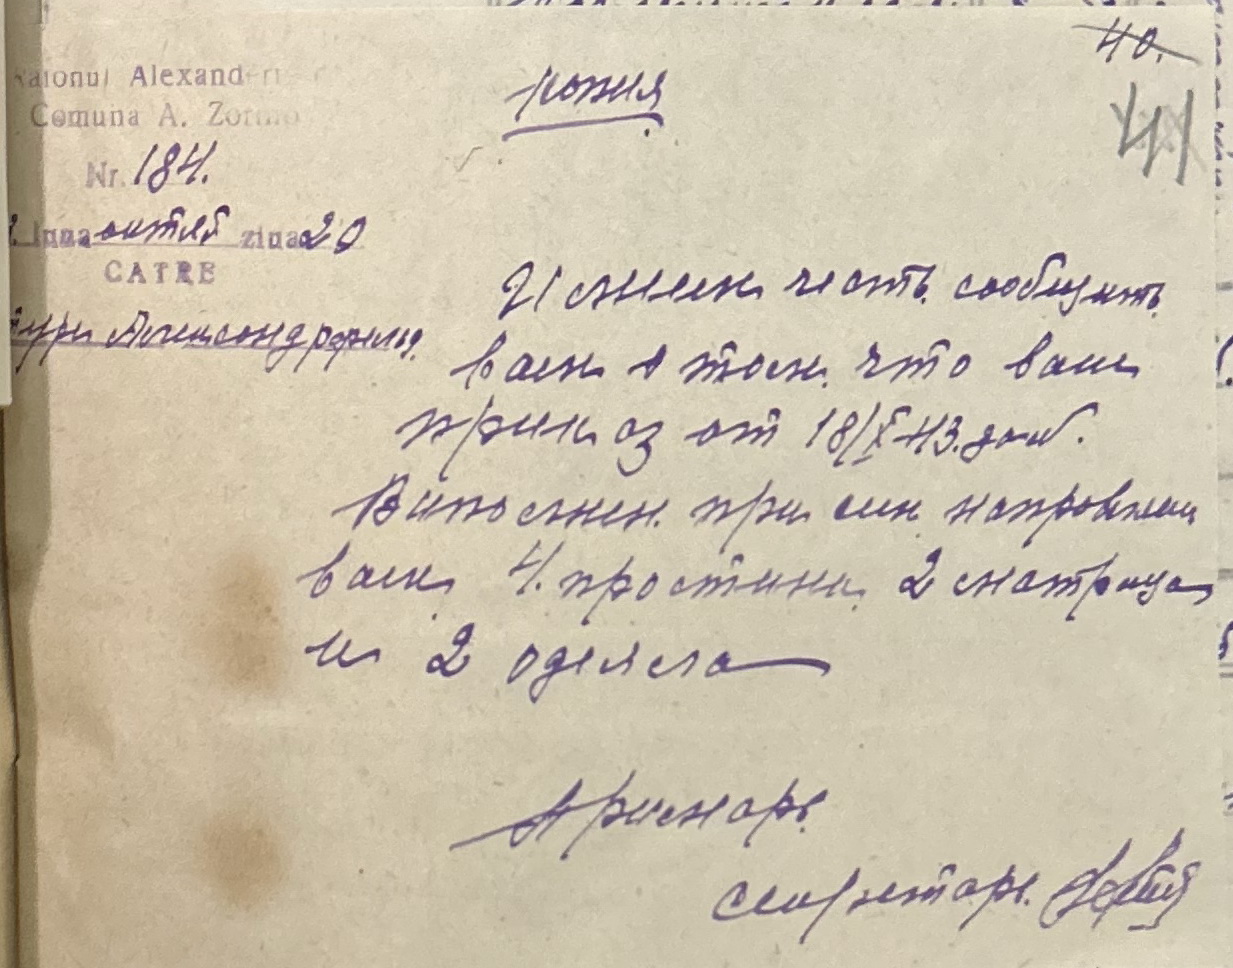 40.
41
Raionul Alexand
Comuna A. Zor
Nr. 184.
luna октяб ziua 20
CATRE
Александрфельд.
копия
И имеем честь сообщить
вам о том что ваш
приказ от 18/X 43.
Виполнен при сим направляем
вам 4. простини 2 матраца
и 2 одеяла
Примарь
секретарь